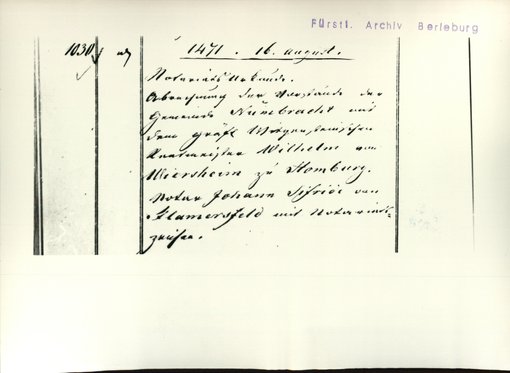 Fürstl. Archiv Berleburg
1030 1471. 16. August.
Notariats Urkunde.
Abrechnung der Vorstände der
Gemeinde Nümbrecht mit
dem gräfl. Wittgensteinischen
Rentmeister Wilhelm von
Wiersheim zu Homburg.
Notar Johann von
Flamersfeld mit Notariats-
zeichen.